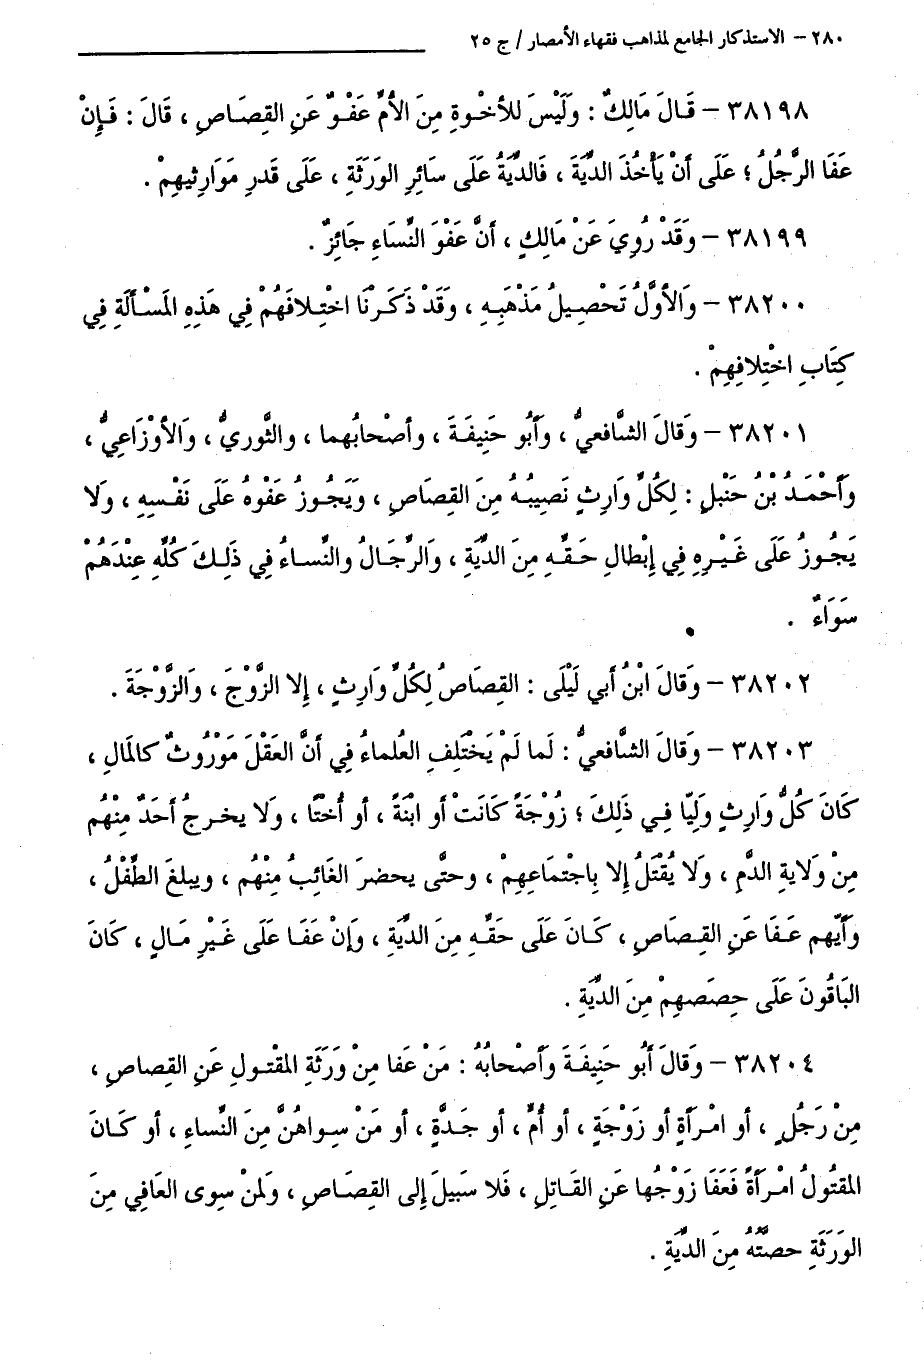 ٢٨٠ – الاستذكار الجامع لمذاهب فقهاء الأمصار / ج ٢٥
٣٨١٩٨ – قَالَ مَالِكٌ : وَلَيْسَ لِلأخْوةِ مِنَ الأمِّ عَفْوٌ عَنِ القِصَاصِ ، قَالَ : فَإِنْ
عَفَا الرَّجُلُ ؛ عَلَى أنْ يَأخُذَ الدِّيَةَ ، فَالدِّيَةُ عَلَى سَائِرِ الوَرَثَةِ ، عَلَى قَدرِ مَوَارِثِيهِمْ .
٣٨١٩٩ – وَقَدْ رُوِيَ عَنْ مَالِكٍ ، أنَّ عَفْوَ النِّسَاءِ جَائِزٌ .
٣٨٢٠٠ – وَالأوَّلُ تَحْصِيلُ مَذْهَبِهِ ، وَقَدْ ذَكَرْنَا اخْتِلافَهُمْ فِي هَذِهِ المَسْألَةِ فِي
كِتَابِ اخْتِلافِهِمْ .
٣٨٢٠١ – وَقالَ الشَّافعيُّ ، وَأَبُو حَنِيفَةَ ، وأصْحابُهما ، والثَّوريُّ ، وَالأوْزَاعِيُّ ،
وأَحْمَدُ بْنُ حَنْبلٍ : لِكُلِّ وَارِثٍ نَصِيبُهُ مِنَ القِصَاصِ ، وَيَجُوزُ عَفْوهُ عَلَى نَفْسِهِ ، وَلا
يَجُوزُ عَلَى غَيْرِهِ فِي إبْطالِ حَقِّهِ مِنَ الدِّيَةِ ، وَالرِّجَالُ والنِّساءُ فِي ذَلِكَ كُلِّهِ عِنْدَهُمْ
سَوَاءٌ .
٣٨٢٠٢ – وَقالَ ابْنُ أبي لَيْلَى : القِصَاصُ لِكُلِّ وَارِثٍ ، إِلا الزَّوْجَ ، وَالزَّوْجَةَ .
٣٨٢٠٣ – وَقالَ الشَّافعيُّ : لَما لَمْ يَخْتَلِفِ العُلماءُ فِي أنَّ العَقْلَ مَوْرُوثٌ كالمَالِ ،
كَانَ كُلُّ وَارِثٍ وَلِيّا فِي ذَلِكَ ؛ زُوْجَةً كَانَتْ أو ابْنَةً ، أو أُخْتًا ، وَلا يخرجُ أحَدٌ مِنْهُم
مِنْ وَلايةِ الدَّمِ ، وَلا يُقْتَلُ إلا بِاجْتماعِهِمْ ، وحتَّى يحضرَ الغَائِبُ مِنْهُم ، ويبلغَ الطِّفْلُ ،
وأَيُّهم عَفَا عَنِ القِصَاصِ ، كَانَ عَلَى حَقِّهِ مِنَ الدِّيَةِ ، وإنْ عَفَا عَلَى غَيْرِ مَالٍ ، كَانَ
البَاقُونَ عَلَى حِصَصِهِمْ مِنَ الدِّيَةِ .
٣٨٢٠٤ – وَقالَ أَبُو حَنِيفَةَ وَأصْحابُهُ : مَنْ عَفا مِنْ وَرَثَةِ المقْتولِ عَنِ القصاصِ ،
مِنْ رَجَُلٍ ، أو امْرَأةٍ أو زَوْجَةٍ ، أو أُمٍّ ، أو جَدَّةٍ ، أو مَنْ سِواهُنَّ مِنَ النِّساءِ ، أو كَانَ
المقتُولُ امْرَأةً فَعَفَا زَوْجُها عَنِ القَاتِلِ ، فَلا سَبِيلَ إلى القِصَاصِ ، وَلمنْ سِوى العَافِي مِنَ
الوَرَثَةِ حصتُهُ مِنَ الدِّيَةِ .